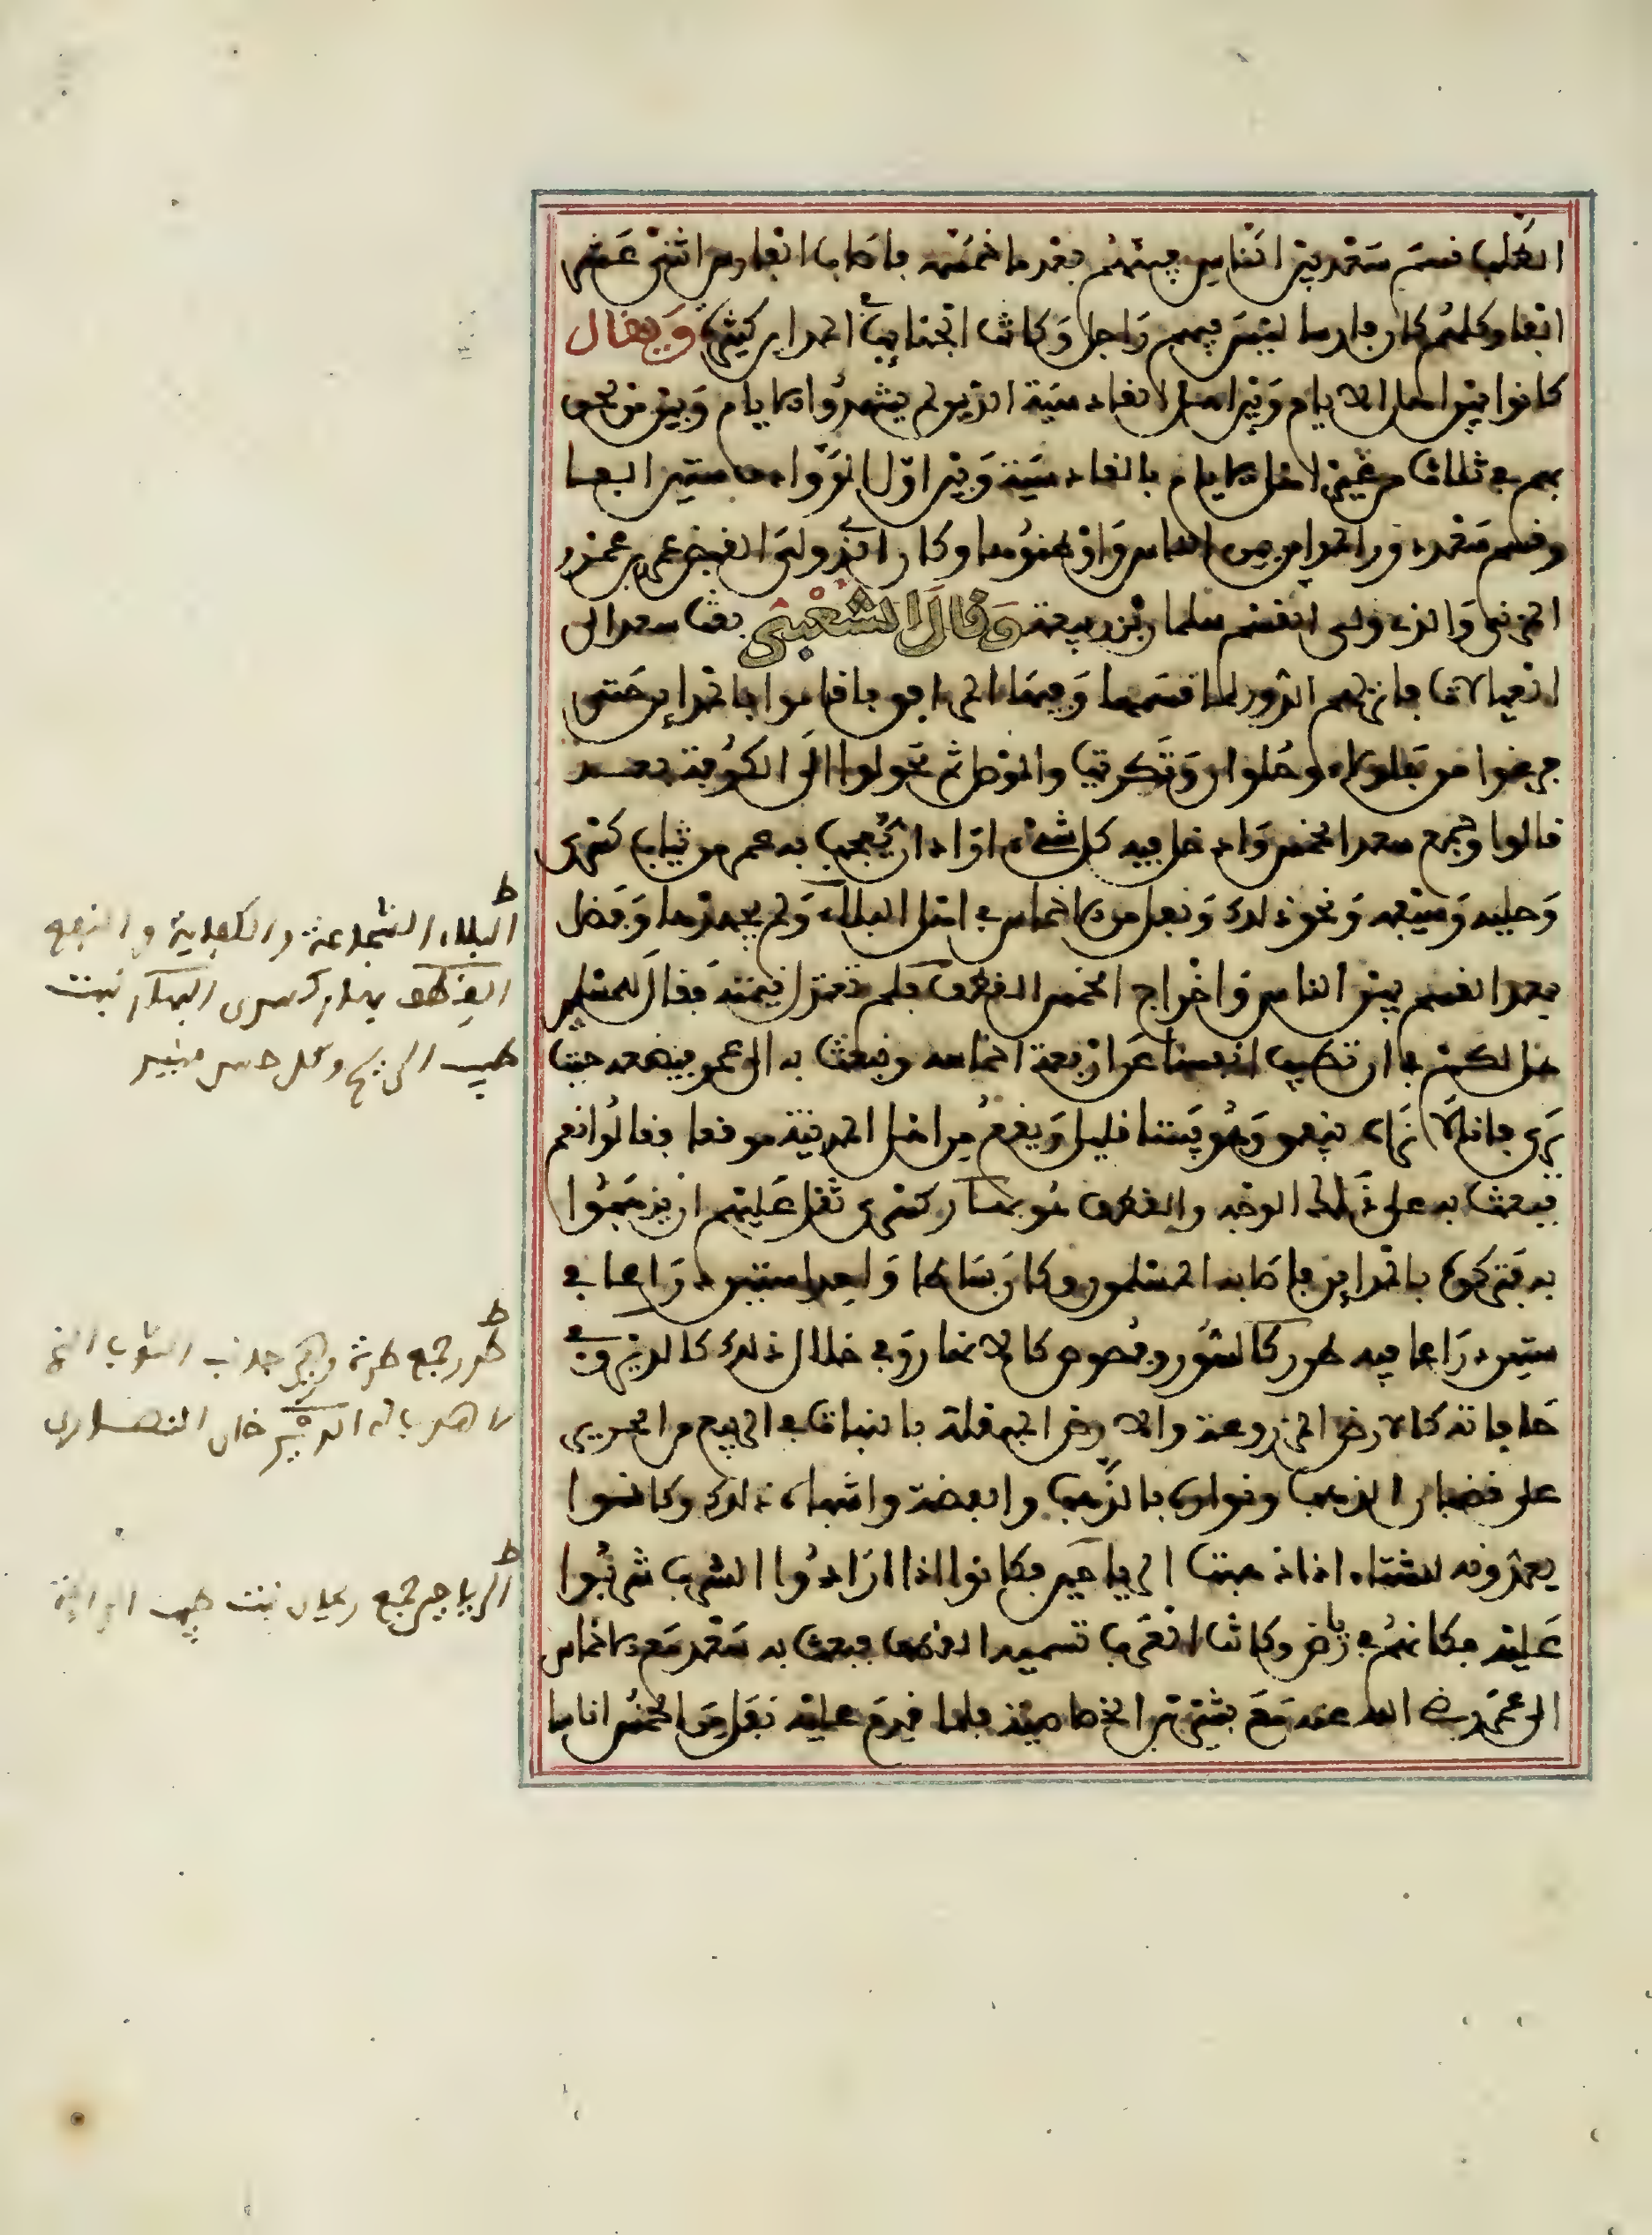 الطلب قسم سعد بين الناس فيئهم بعد ما خمسه فأصاب الفارس اثني عشر
ألفا وكلهم كان فارسا ليس فيهم راجل وكانت الجنائب في المدائن كثيرة ويقال
كانوا بين أهل الأيام وبين أهل القادسية الذين لم يشهدوا الأيام وبين من لحق
بهم في ثلاث من غير أهل الأيام بالقادسية وبين أول الروادف ستين ألفا
وقسم سعد دور المدائن بين الناس وأوطنوها وكان الذي ولي القبض عمرو بن عمرو
المزني والذي ولي القسم سلمان بن ربيعة وقال الشعبي بعث سعد إلى
العيالات فأنزلهم الدور لما قسمها وفيها المرافق فأقاموا بالمدائن حتى
فرغوا من جلولاء وحلوان وتكريت والموصل ثم تحولوا إلى الكوفة بعد
قالوا وجمع سعد الخمس وأدخل فيه كل شيء أراد أن يعجب به عمر من ثياب كسرى
وحليه وسيفه ونحو ذلك ونفل من الأخماس في أهل البلاء ولم يجهدها وفضل
بعد القسم بين الناس وإخراج الخمس القطف فلم تعتدل قيمته فقال للمسلمين
هل لكم في أن تطيب أنفسنا عن أربعة أخماسه ونبعث به إلى عمر فيضعه حيث
يرى فإنا لا نراه ينقسم وهو بيننا قليل ويقع من أهل المدينة موقعا فقالوا نعم
فبعث به على ذلك الوجه والقطف هو بهار كسرى ثقل عليهم أن يذهبوا
به فتركوه بالمدائن فأصابه المسلمون وكان بساطا واحدا ستين ذراعا في
ستين ذراعا فيه طرر كالصور وفصوص كالأنهار وفي خلال ذلك كالدير وفي
حافاته كالأرض المزروعة والأرض المبقلة بالنبات في الربيع من الحرير
على قضبان الذهب ونواره بالذهب والفضة وأشباه ذلك وكانوا
يعدونه للشتاء إذا ذهبت الرياحين فكانوا إذا أرادوا الشرب شربوا
عليه فكأنهم في رياض وكانت العرب تسميه القطف فبعث به سعد مع الأخماس
إلى عمر رضي الله عنه مع بشير بن الخصاصية فلما قدم عليه نفل من الخمس أناسا
ط
البلاء الشجاعة والكفاية والنفع
القطف بهار كسرى البهار نبت
طيب الريح وكل حسن منير
ط
طرر جمع طرة وهي جانب الثوب الذي
لا هدب له الدير خان النصارى
ط
الرياحين جمع ريحان نبت طيب الرائحة